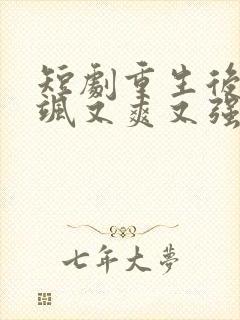 短劇重生後
颯又爽又强
七年大夢